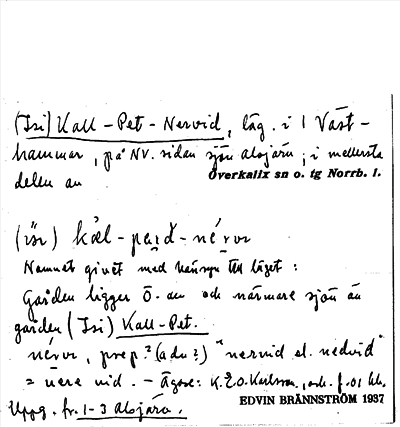 (Isi) Kall-Pet-Nervid, läg. i 1 Väst-
hammar, på NV. sidan sjön alojärv; i mellersta
delen av
Överkalix sn o. tg Norrb. l.
Namnet givet med hänsyn till läget:
Gården ligger Ö. om och närmare sjön än
gården (Isi) Kall-Pet.
prep. (adv?) "nervid el. nedvid"
= nere vid. - Ägare: K.E.O. Karlsson,
EDVIN BRÄNNSTRÖM 1937
Uppg. fr. 1-3 alojärv.